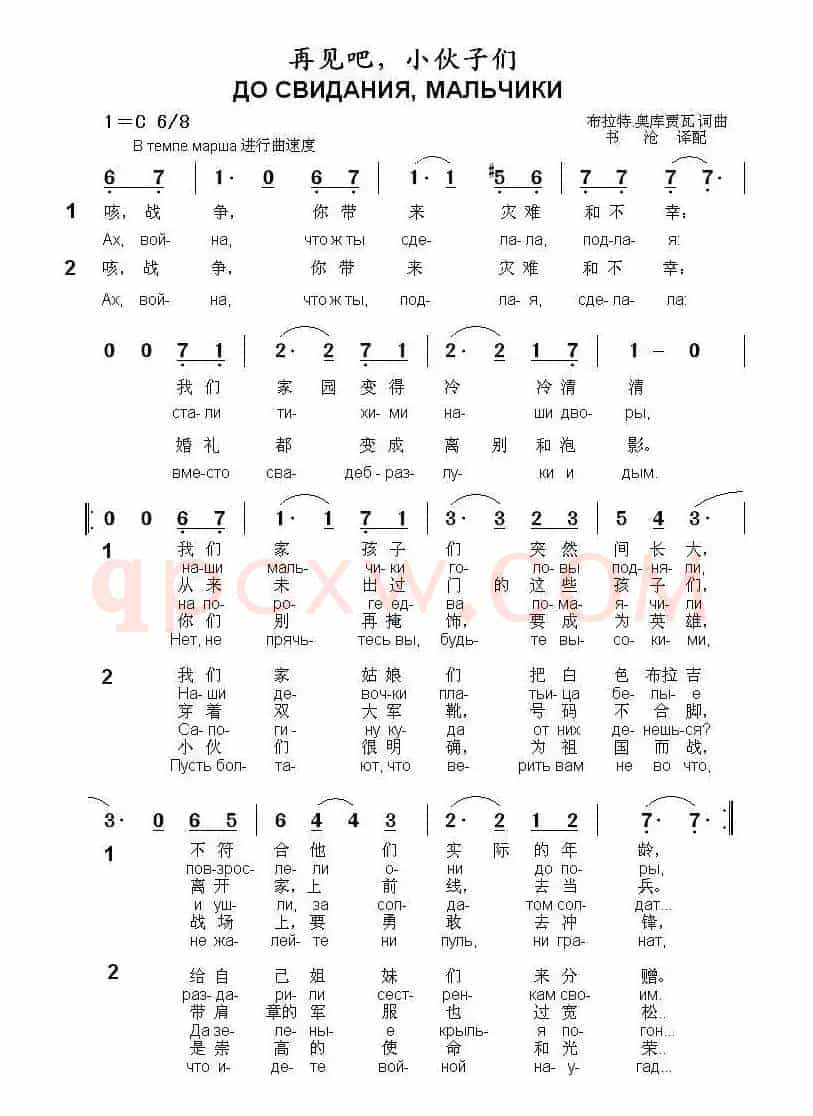 再见吧，小伙子们
ДО СВИДАНИЯ, МАЛЬЧИКИ
1＝C 6/8
布拉特.奥库贾瓦 词曲
В темпе марша 进行曲速度
书 沧 译配
6 7 | 1· 0 6 7 | 1· 1 #5 6 | 7 7 7 7· |
1 咳，战 争， 你 带 来 灾 难 和 不 幸；
Ах, вой- на, что ж ты сде- ла- ла, под- ла- я:
2 咳，战 争， 你 带 来 灾 难 和 不 幸；
Ах, вой- на, что ж ты, под- ла- я, сде- ла- ла:
0 0 7 1 | 2· 2 7 1 | 2· 2 1 7 | 1 – 0
我 们 家 园 变 得 冷 冷 清 清
ста- ли ти- хи- ми на- ши дво- ры,
婚 礼 都 变 成 离 别 和 泡 影。
вме- сто сва- деб - раз- лу- ки и дым.
0 0 6 7 | 1· 1 7 1 | 3· 3 2 3 | 5 4 3·
1 我 们 家 孩 子 们 突 然 间 长 大，
на- ши маль- чи- ки го- ло- вы под- ня- ли,
从 来 未 出 过 门 的 这 些 孩 子 们，
на по- ро- ге ед- ва по- ма- я- чи- ли
你 们 别 再 掩 饰， 要 成 为 英 雄，
Нет, не прячь- тесь вы, будь- те вы- со- ки- ми,
2 我 们 家 姑 娘 们 把 白 色 布 拉 吉
На- ши де- воч- ки пла- тьи- ца бе- лы- е
穿 着 双 大 军 靴， 号 码 不 合 脚，
Са- по- ги - ну ку- да от них де- нешь- ся?
小 伙 们 很 明 确， 为 祖 国 而 战，
Пусть бол- та- ют, что ве- рить вам не во что,
3· 0 6 5 | 6 4 4 3 | 2· 2 1 2 | 7· 7·
1 不 符 合 他 们 实 际 的 年 龄，
пов- зрос- ле- ли о- ни до по- ры,
离 开 家，上 前 线， 去 当 兵。
и уш- ли, за сол- да- том сол- дат...
战 场 上，要 勇 敢 去 冲 锋，
не жа- лей- те ни пуль, ни гра- нат,
2 给 自 己 姐 妹 们 来 分 赠。
раз- да- ри- ли сест- рен- кам сво- им.
带 肩 章 的 军 服 也 过 宽 松..
Да зе- ле- ны- е крыль- я по- гон...
是 崇 高 的 使 命 和 光 荣..
что и- де- те вой- ной на- у- гад...
qpcxw.com